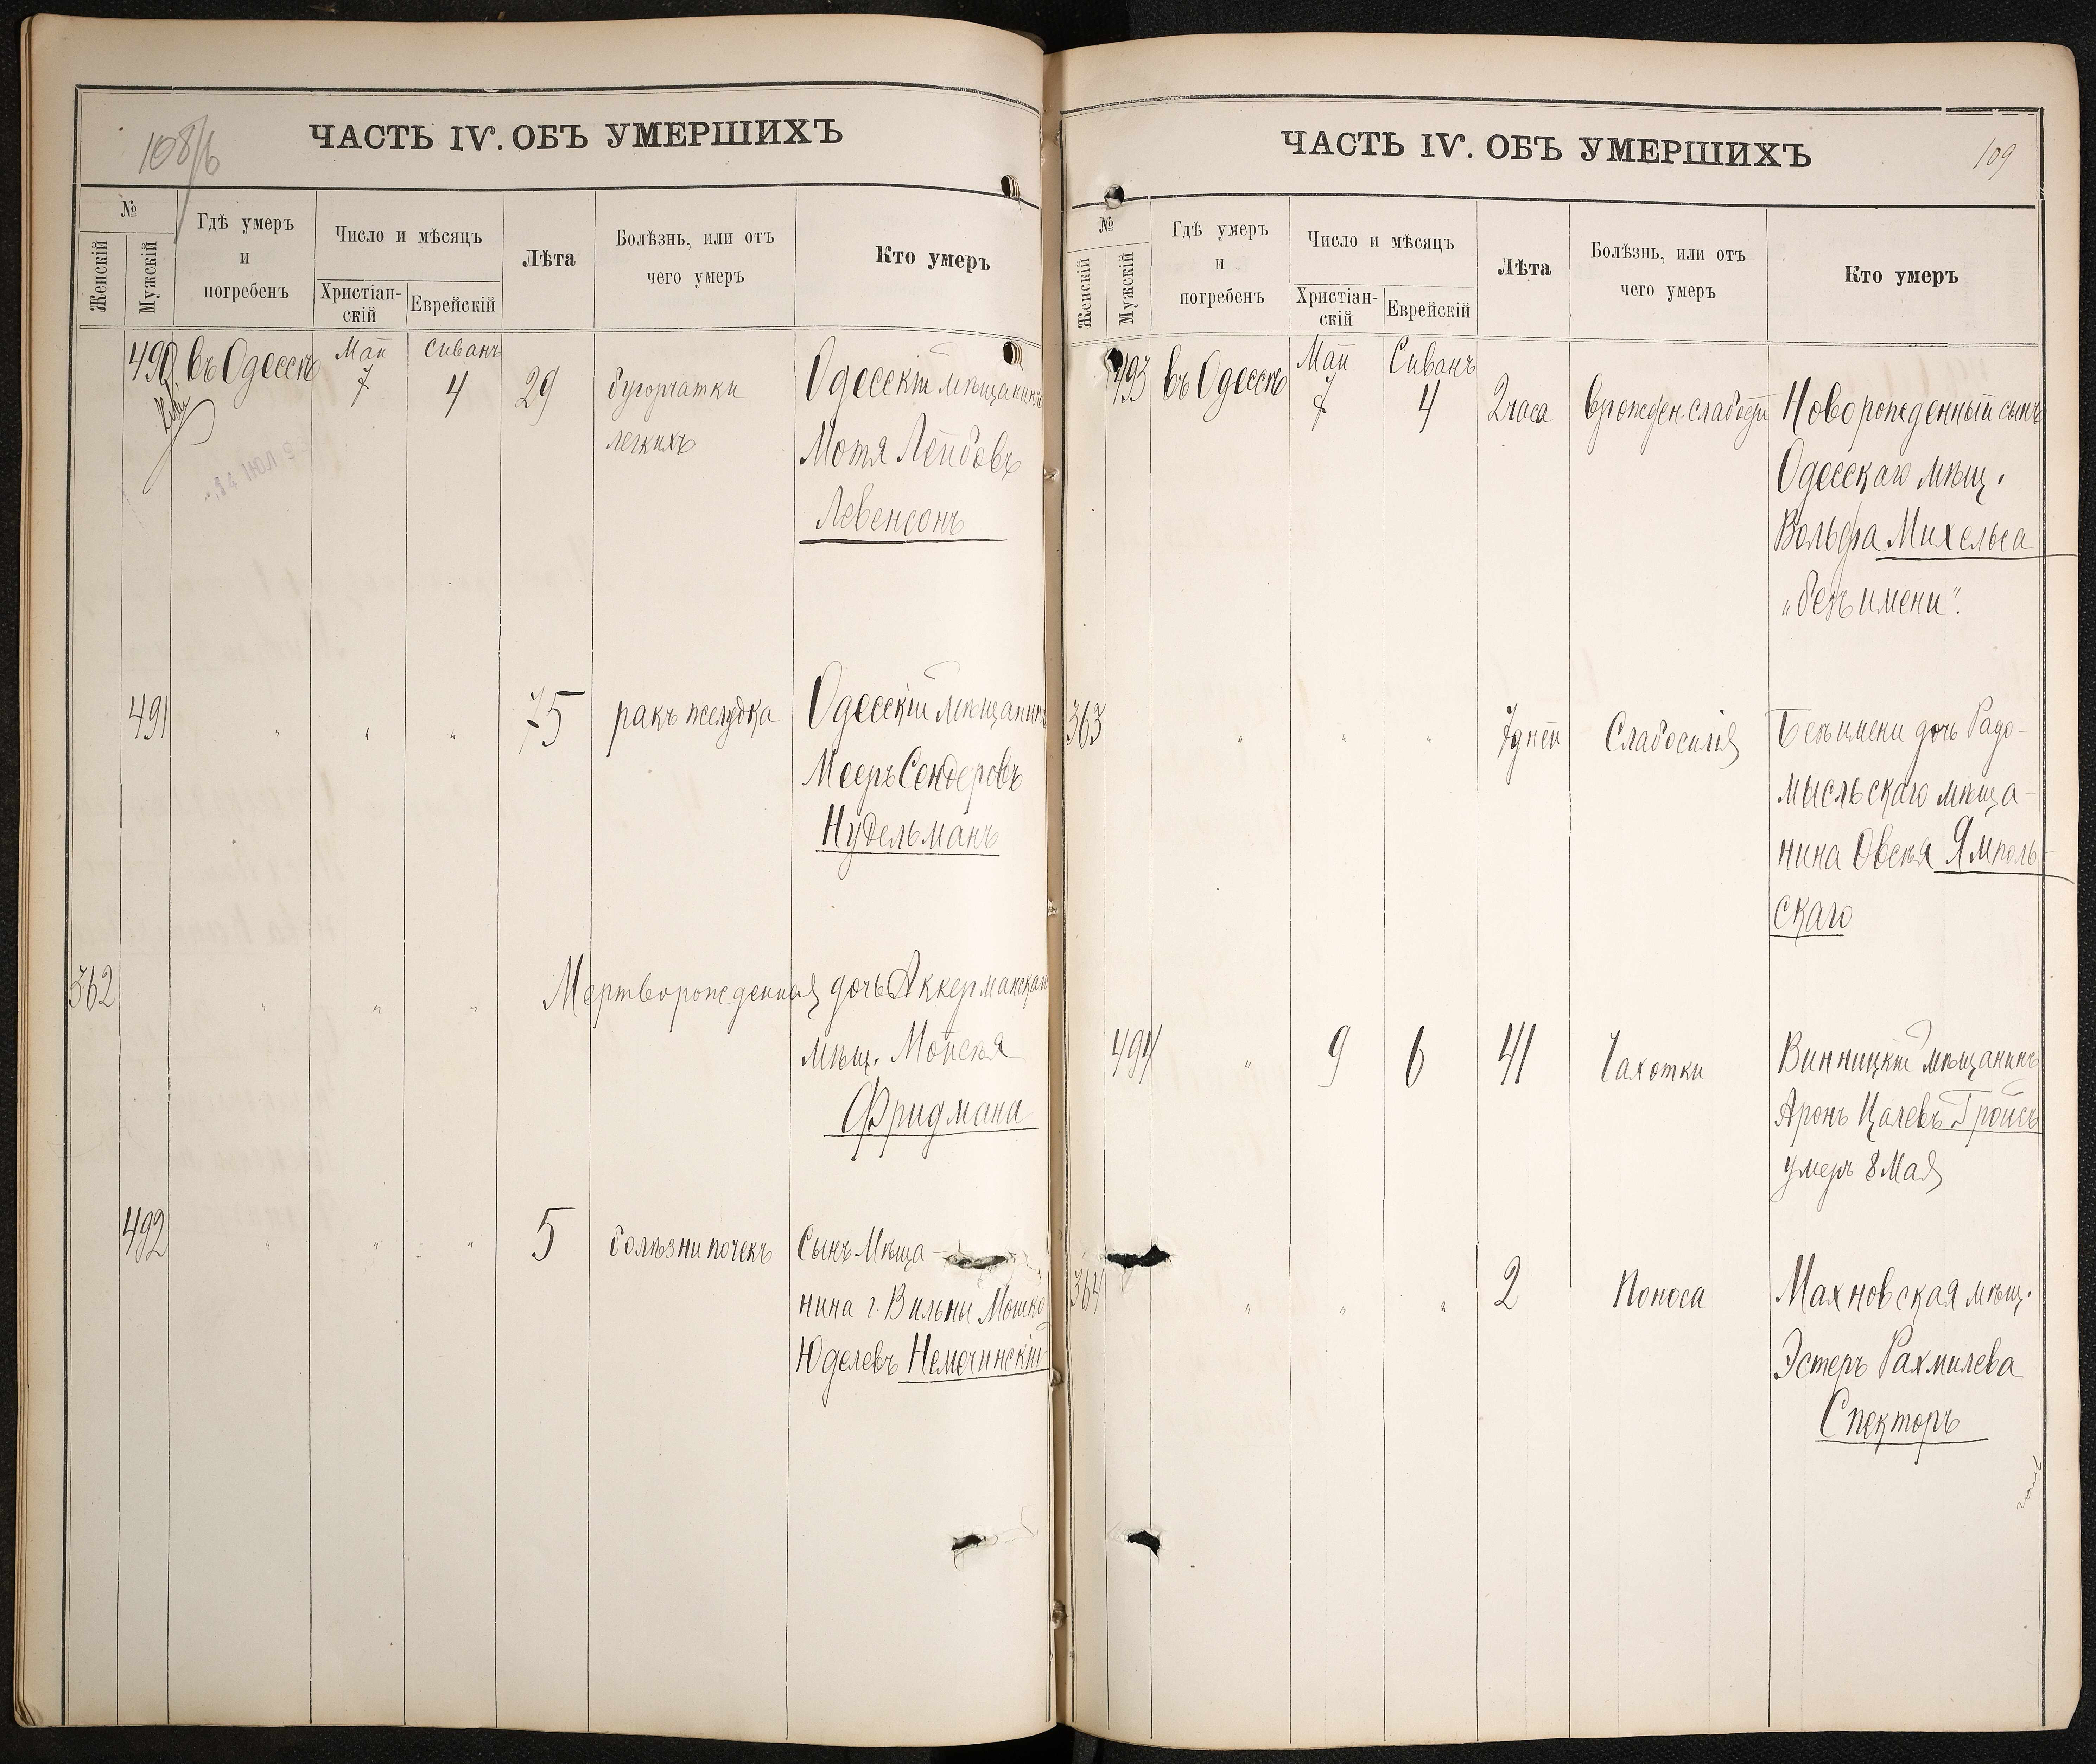 108/б
ЧАСТЬ IV. ОБЪ УМЕРШИХЪ
№
Женскій
Мужскій
Гдѣ умеръ
и
погребенъ
Число и мѣсяцъ
Христіан-
скій
Еврейскій
Лѣта
Болѣзнь, или отъ
чего умеръ
Кто умеръ
490 въ Одессѣ Май 7 Сиванъ 4 29 бугорчатки
легкихъ
Одесскій мѣщанинъ
Мотя Лейбовъ
Левенсонъ
491 " " " 75 ракъ желудка Одесскій мѣщанинъ
Мееръ Сендеровъ
Нудельманъ
362 " " " Мертворожденная дочь Аккерманскаго
мѣщ. Мойсѣя
Фридмана
492 " " " 5 болѣзни почекъ Сынъ Мѣща-
нина г. Вильны Мошко
Юделевъ Немечинскій
ЧАСТЬ IV. ОБЪ УМЕРШИХЪ
109
№
Женскій
Мужскій
Гдѣ умеръ
и
погребенъ
Число и мѣсяцъ
Христіан-
скій
Еврейскій
Лѣта
Болѣзнь, или отъ
чего умеръ
Кто умеръ
493 въ Одессѣ Май 7 Сиванъ 4 2 часа врожден. слабости Новорожденный сынъ
Одесскаго мѣщ.
Вольфа Михельса
„безъ имени".
363 " " " 7 дней Слабосилія Безъ имени дочь Радо-
мысльскаго мѣща-
нина Овсѣя Ямполь-
скаго
494 " 9 6 41 Чахотки Винницкій мѣщанинъ
Аронъ Цалевъ Гройсъ
умеръ 8 Мая
364 " " " 2 Поноса Махновская мѣщ.
Эстеръ Рахмилева
Спекторъ